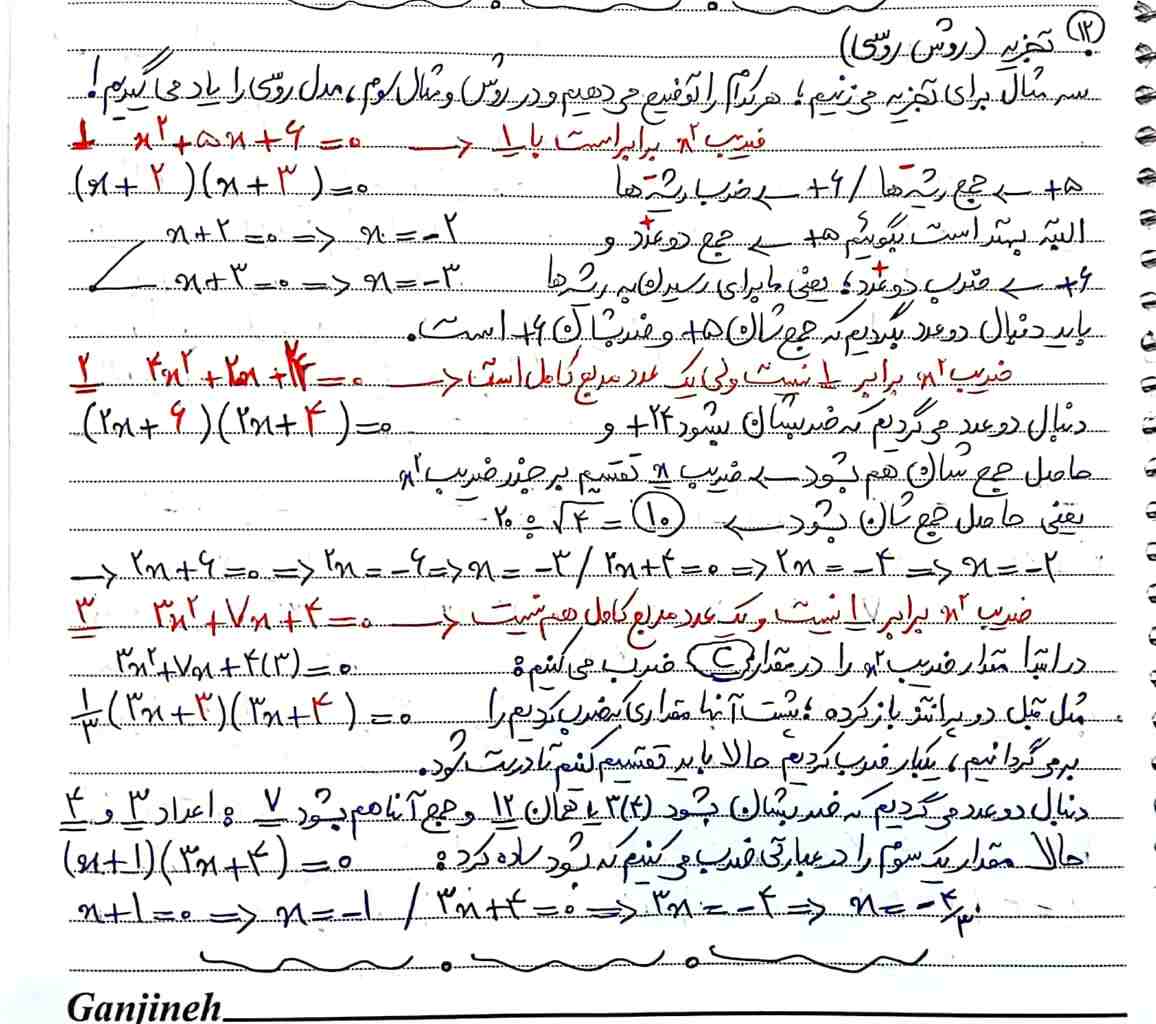 ۱۲ تجزیه (روش روسی)
سه مثال برای تجزیه می‌زنیم؛ هرکدام را توضیح می‌دهیم و در روش و مثال سوم، مدل روسی را یاد می‌گیریم!
۱ x²+۵x+۶=۰ → ضریب x² برابر است با ۱
(x+۲)(x+۳)=۰ +۵ ← جمع ریشه‌ها / +۶ ← ضرب ریشه‌ها
x+۲=۰ => x=-۲ البته بهتر است بگوئیم +۵ ← جمع دو عدد و
x+۳=۰ => x=-۳ +۶ ← ضرب دو عدد؛ یعنی ما برای رسیدن به ریشه‌ها
باید دنبال دو عدد بگردیم که جمع‌شان +۵ و ضربشان +۶ است.
۲ ۴x²+۲۰x+۲۴=۰ → ضریب x² برابر ۱ نیست ولی یک عدد مربع کامل است
(۲x+۶)(۲x+۴)=۰ دنبال دو عدد می‌گردیم که ضربشان بشود +۲۴ و
حاصل جمع‌شان هم بشود ← ضریب x تقسیم بر جذر ضریب x²
یعنی حاصل جمع‌شان بشود ← ۲۰÷√۴=۱۰
→ ۲x+۶=۰ => ۲x=-۶ => x=-۳ / ۲x+۴=۰ => ۲x=-۴ => x=-۲
۳ ۳x²+۷x+۴=۰ → ضریب x² برابر ۱ نیست و یک عدد مربع کامل هم نیست
۳x²+۷x+۴(۳)=۰ در ابتدا مقدار ضریب x² را در مقدار C ضرب می‌کنیم:
۱/۳(۳x+۳)(۳x+۴)=۰ مثل قبل دو پرانتز باز کرده؛ پشت آنها مقداری که ضرب کردیم را
برمی‌گردانیم، یکبار ضرب کردیم حالا باید تقسیم کنیم تا درست شود.
دنبال دو عدد می‌گردیم که ضربشان بشود ۳(۴) یا همان ۱۲ و جمع آنها هم بشود ۷: اعداد ۳ و ۴
(x+۱)(۳x+۴)=۰ حالا مقدار یک سوم را در عبارتی ضرب می‌کنیم که شود ساده کرد:
x+۱=۰ => x=-۱ / ۳x+۴=۰ => ۳x=-۴ => x=-۴/۳
Ganjineh